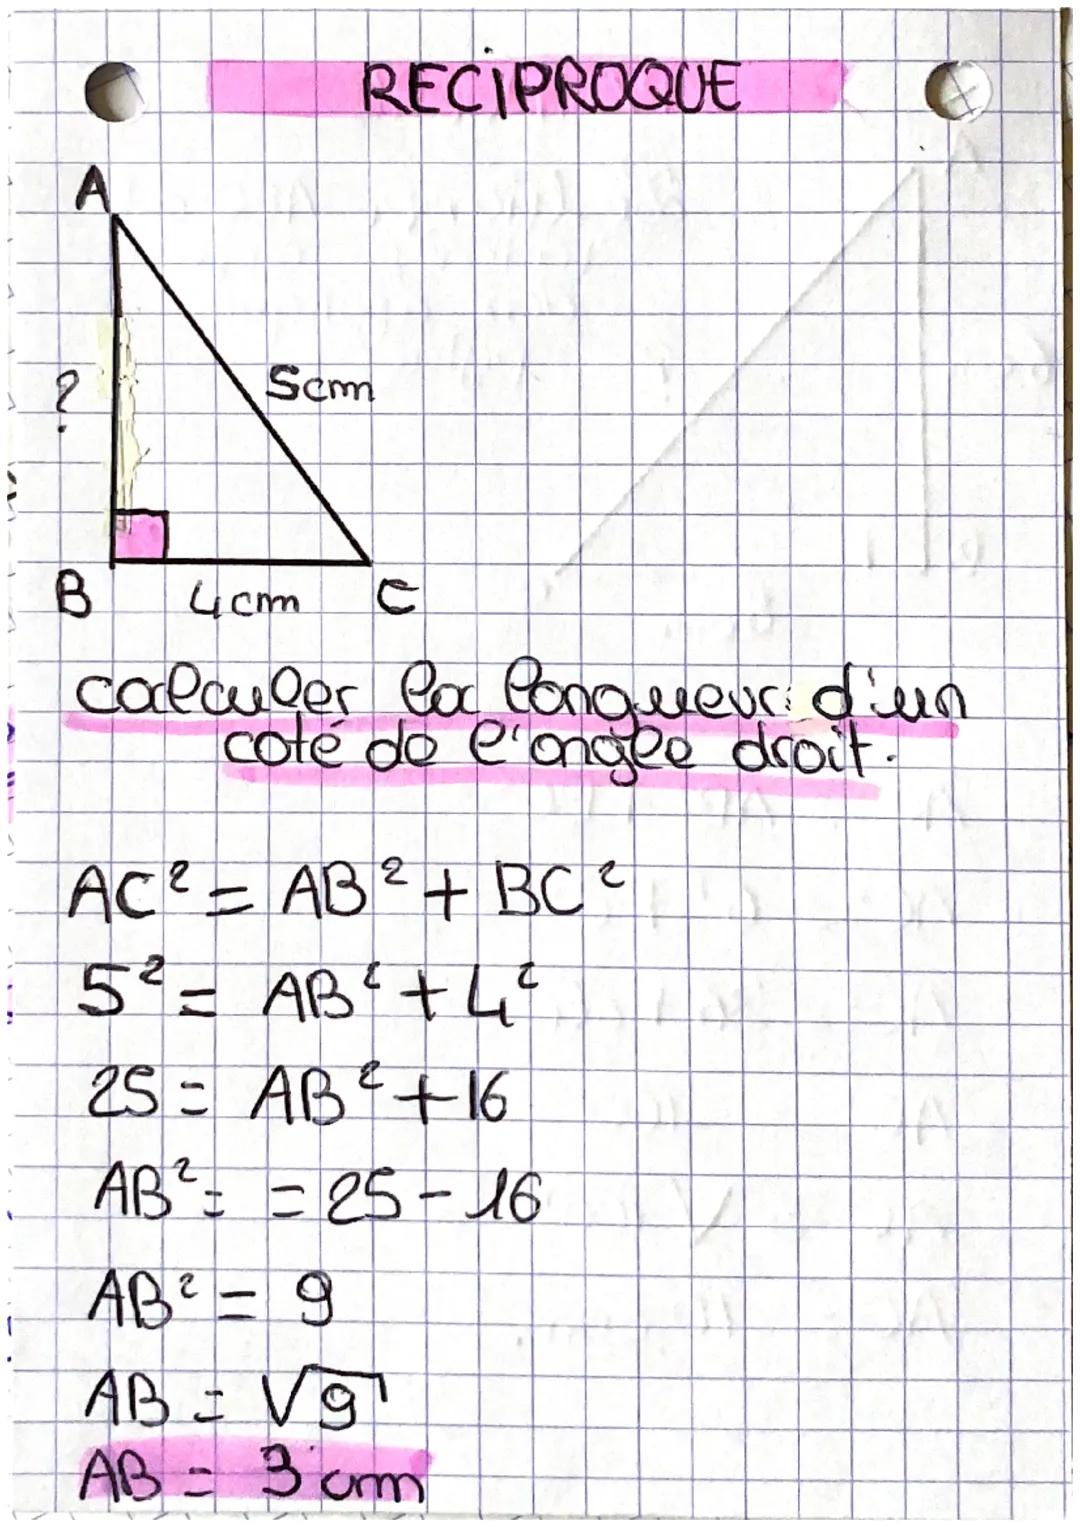 RECIPROQUE
A
?
5cm
B
4cm
C
calculer la longueur d'un
coté de l'angle droit.
AC² = AB² + BC²
5² = AB² + 4²
25 = AB² + 16
AB² = = 25 - 16
AB² = 9
AB = √9
AB = 3 cm